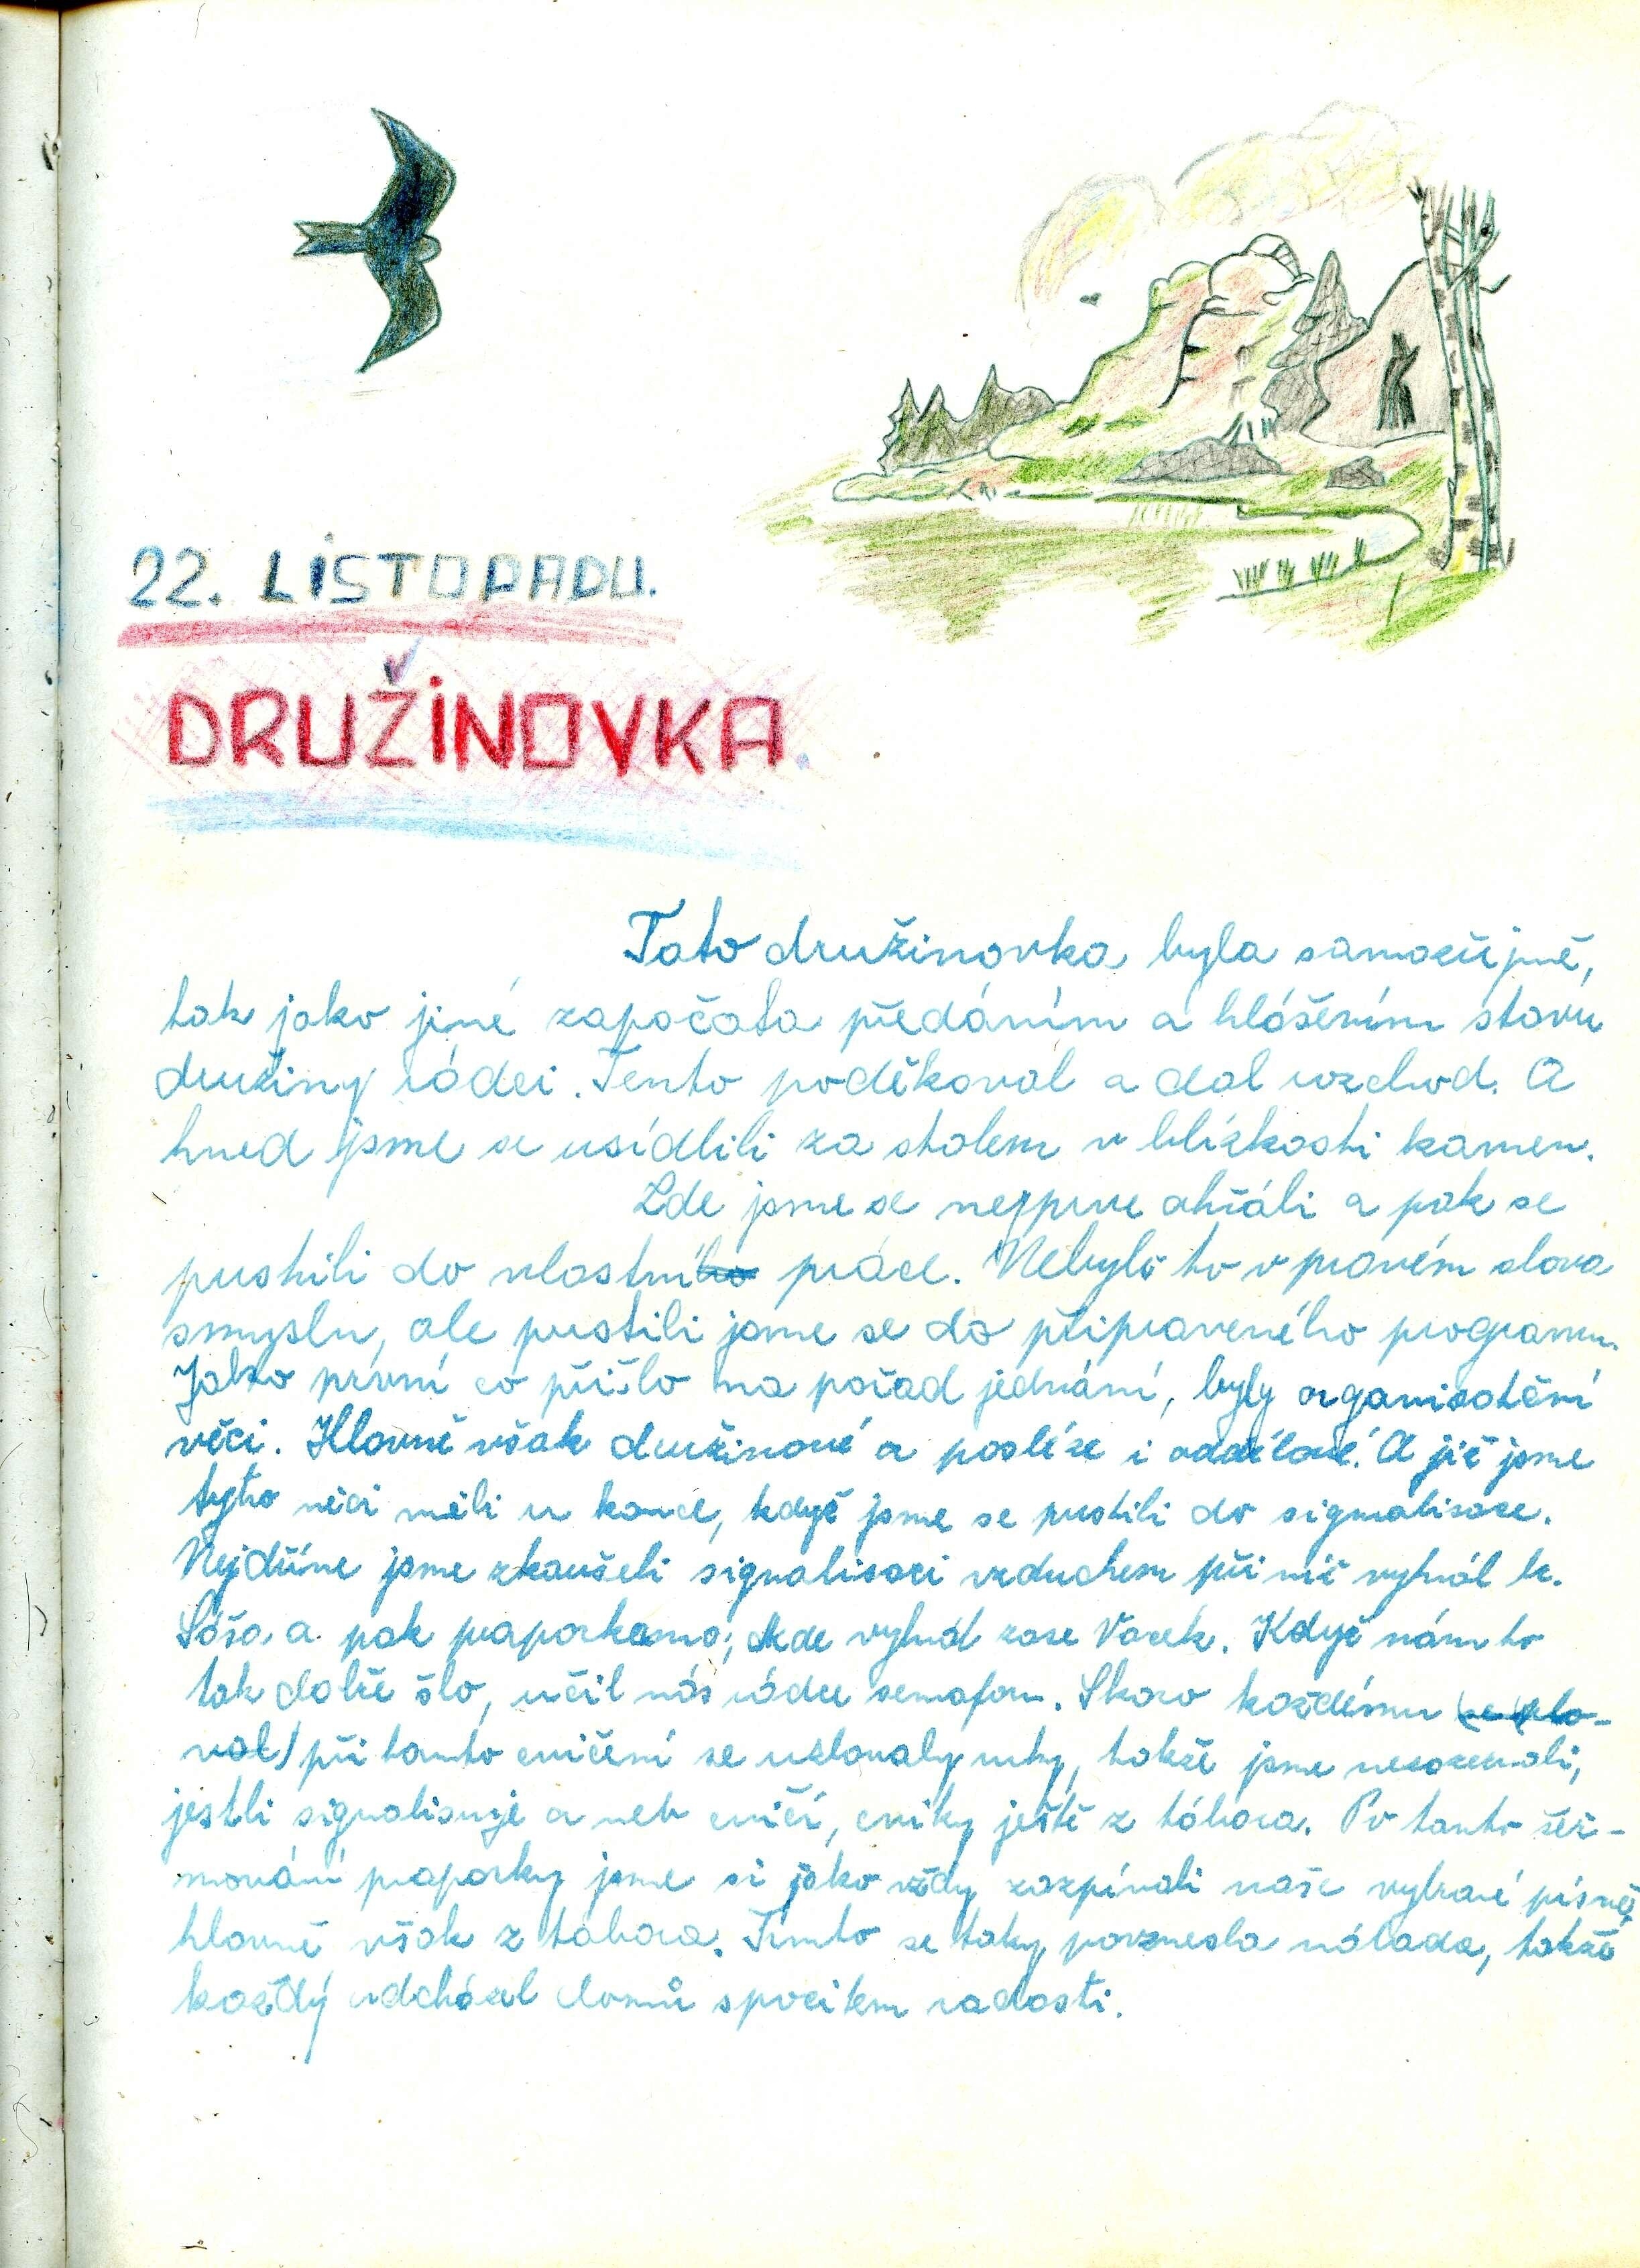 22. LISTOPADU.
DRUŽINOVKA.
Tato družinovka byla samozřejmě,
tak jako jiné započata předáním a hlášením stavu
družiny rádci. Tento poděkoval a dal rozchod. A
hned jsme se usídlili za stolem v blízkosti kamen.
Zde jsme se nejprve ohřáli a pak se
pustili do vlastní práce. Nebylo to v pravém slova
smyslu, ale pustili jsme se do připraveného programu.
Jako první co přišlo na pořad jednání, byly organisační
věci. Hlavně však družinové a posléze i oddílové. A již jsme
tyto věci měli u konce, když jsme se pustili do signalisace.
Nejdříve jsme zkoušeli signalisaci vzduchem při níž vyhrál br.
Sáša a pak praporkama, kde vyhrál zase Vacek. Když nám to
tak dobře šlo, učil nás rádce semafor. Skoro každému (se plo-
val) při tomto cvičení se uzlovaly ruky, takže jsme
jestli signalisuje a neb cvičí, cviky ještě z tábora. Po tomto šer-
mování praporky jsme si jako vždy zazpívali naše vybrané písně,
hlavně však z tábora. Tímto se taky povznesla nálada, takže
každý odcházel domů s pocitem radosti.